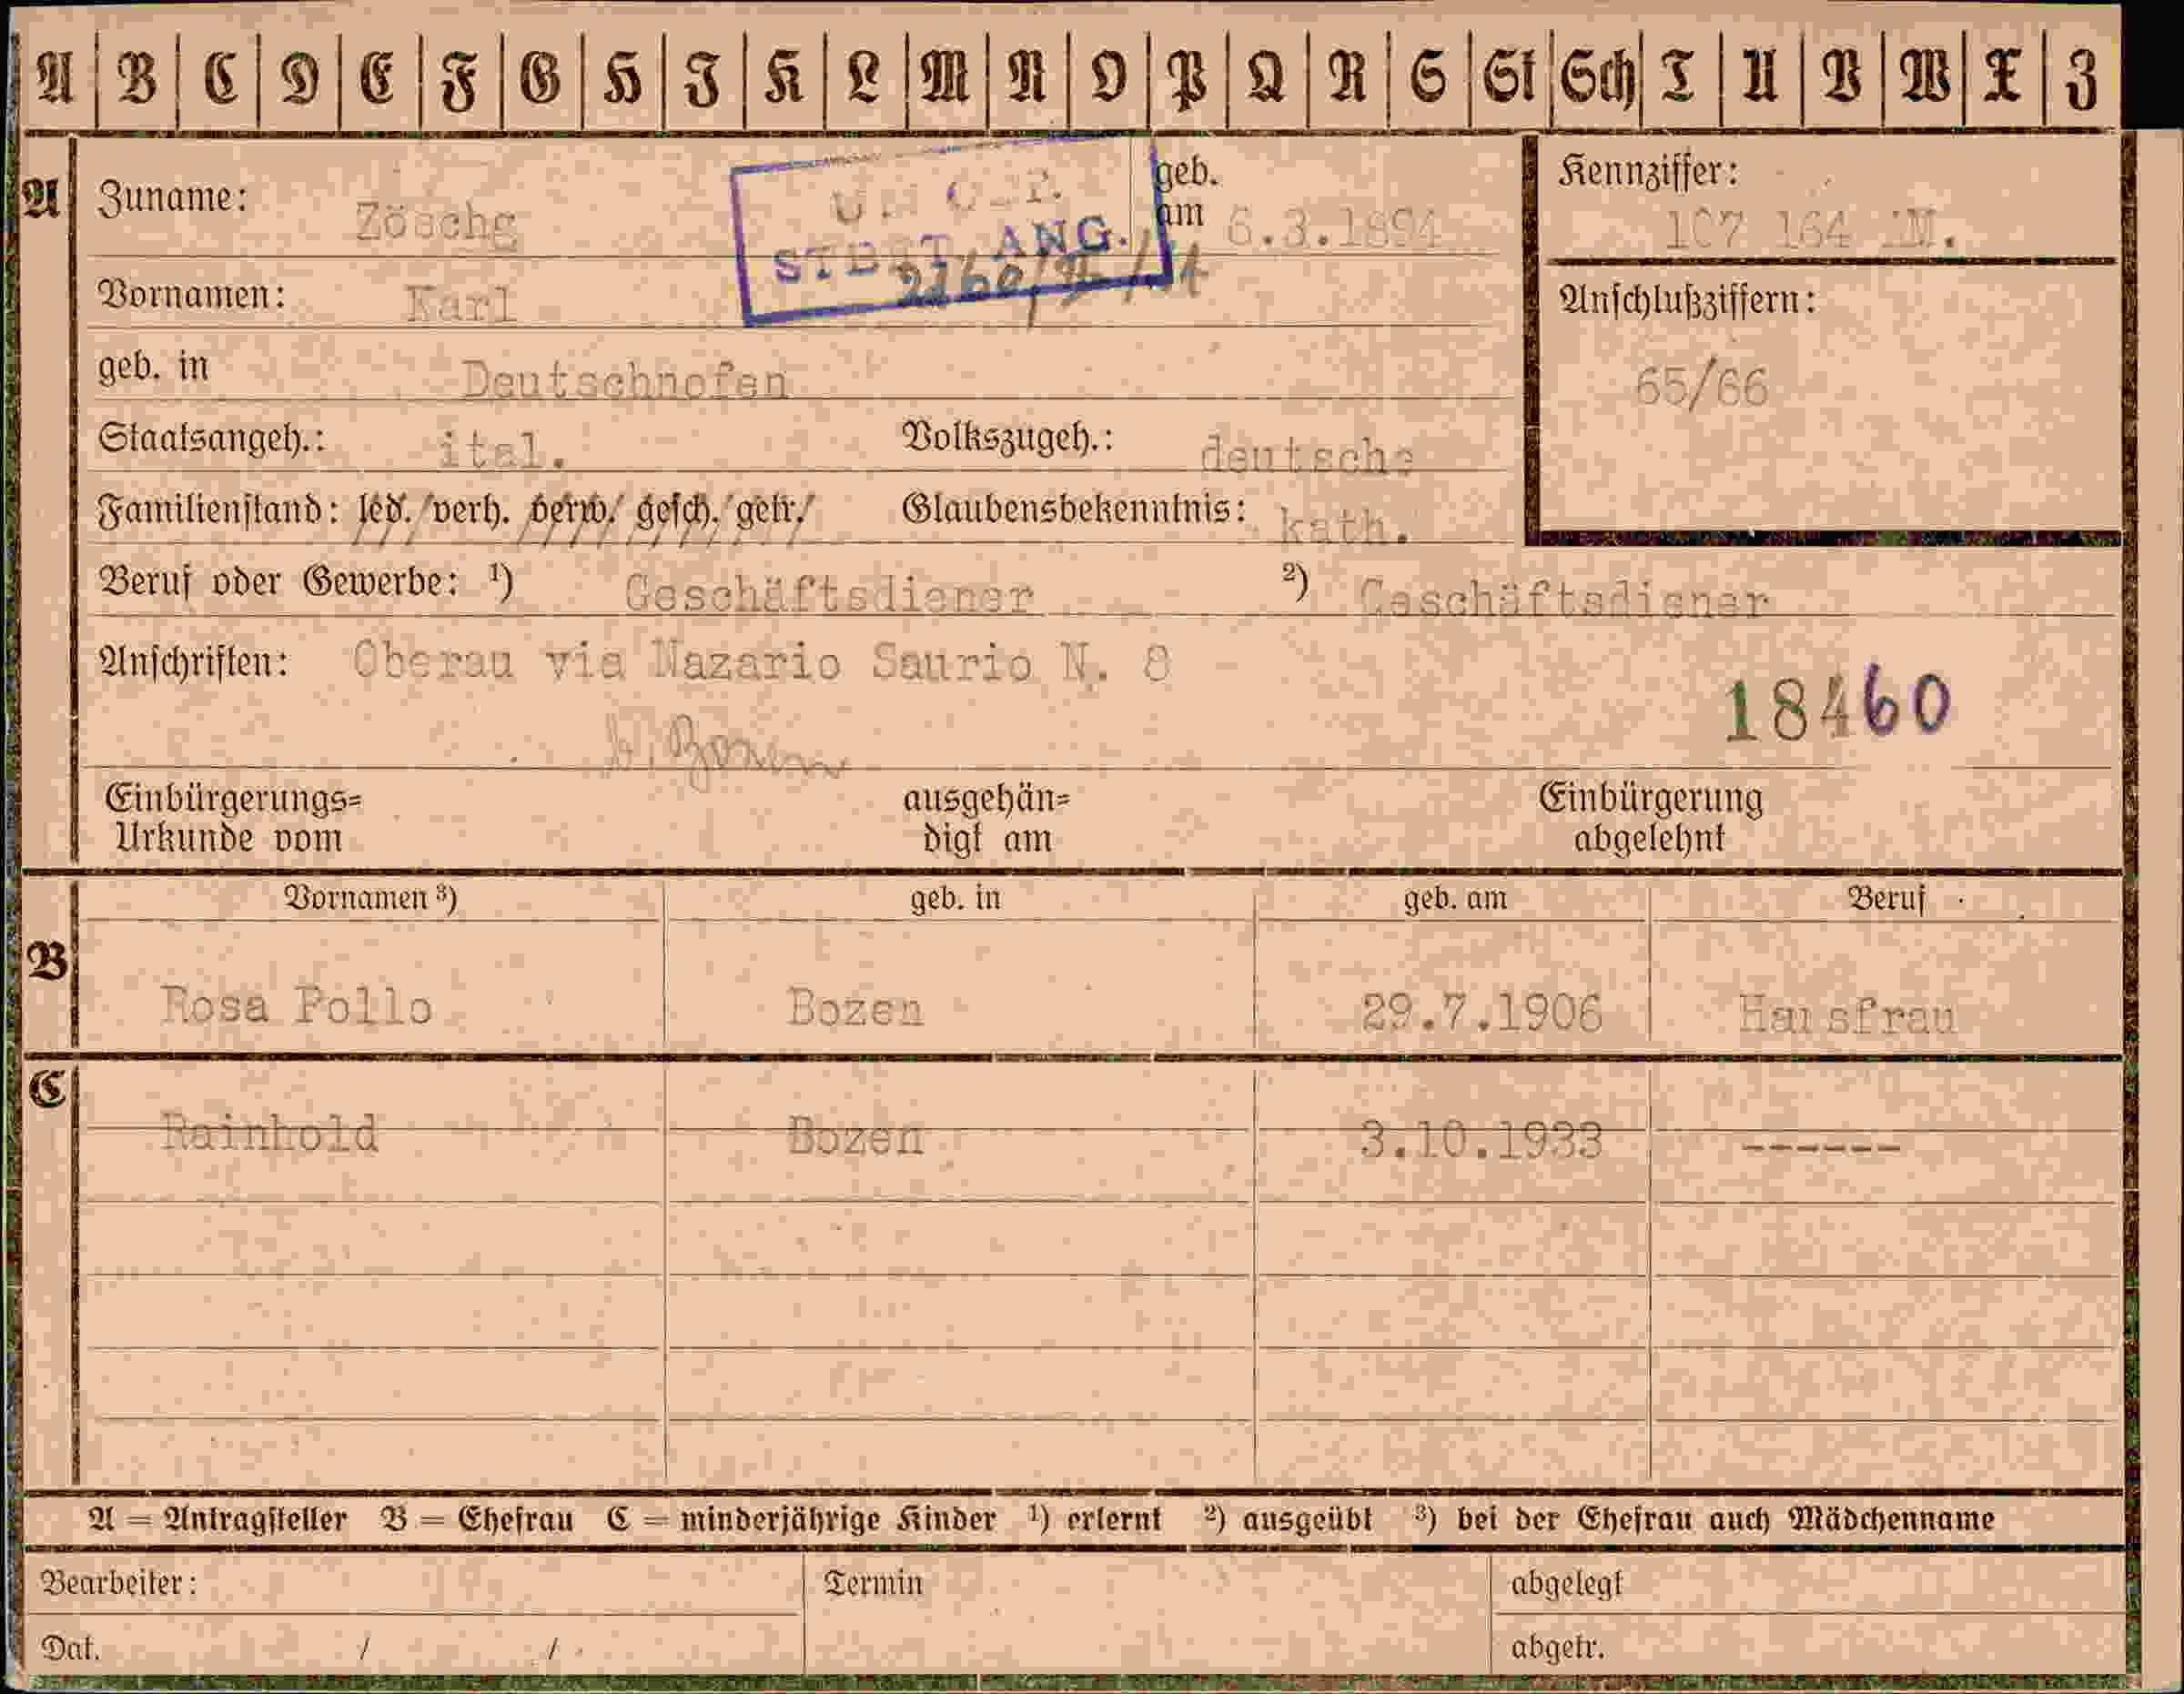 A B C D E F G H I K L M N O P Q R S St Sch T U V W X Z
A Zuname: Zöschg geb. am 6.3.1894 Kennziffer: 107 164
STBST. ANG.
Vornamen: Karl Anschlußziffern:
geb. in Deutschnofen 65/66
Staatsangeh.: ital. Volkszugeh.: deutsche
Familienstand: led./verh. verw./ gesch./ getr./ Glaubensbekenntnis: kath.
Beruf oder Gewerbe: ¹) Geschäftsdiener ²) Geschäftsdiener
Anschriften: Oberau via Nazario Saurio N. 8
18460
Bozen
Einbürgerungs= ausgehän= Einbürgerung
Urkunde vom digt am abgelehnt
Vornamen ³) geb. in geb. am Beruf
B
Rosa Pollo Bozen 29.7.1906 Hausfrau
C
Rainhold Bozen 3.10.1933 ------
A = Antragsteller B = Ehefrau C = minderjährige Kinder ¹) erlernt ²) ausgeübt ³) bei der Ehefrau auch Mädchenname
Bearbeiter: Termin abgelegt
Dat. / / abgetr.